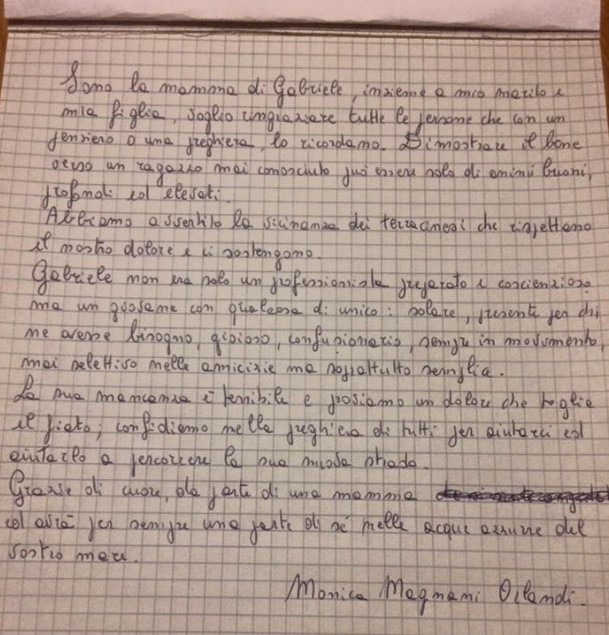 Sono la mamma di Gabriele, insieme a mio marito e
mia figlia, voglio ringraziare tutte le persone che con un
pensiero o una preghiera, lo ricordano. Dimostrare il bene
verso un ragazzo mai conosciuto può essere solo di animi buoni,
profondi ed elevati.
Abbiamo avvertito la vicinanza dei terracinesi che rispettano
il nostro dolore e ci sostengono.
Gabriele non era solo un professionista preparato e coscienzioso
ma un giovane con qualcosa di unico: solare, presente per chi
ne avesse bisogno, gioioso, confusionario, sempre in movimento,
mai selettivo nelle amicizie ma soprattutto semplice.
La sua mancanza è terribile e proviamo un dolore che toglie
il fiato; confidiamo nella preghiera di tutti per aiutarci ed
aiutarlo a percorrere la sua nuova strada.
Grazie di cuore, da parte di una mamma
ed avrà per sempre una parte di sé nelle acque azzurre del
vostro mare.
Monica Magnani Orlandi.